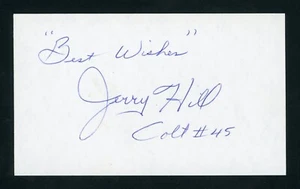 "Best Wishes"
Jerry Hill
Colt #45